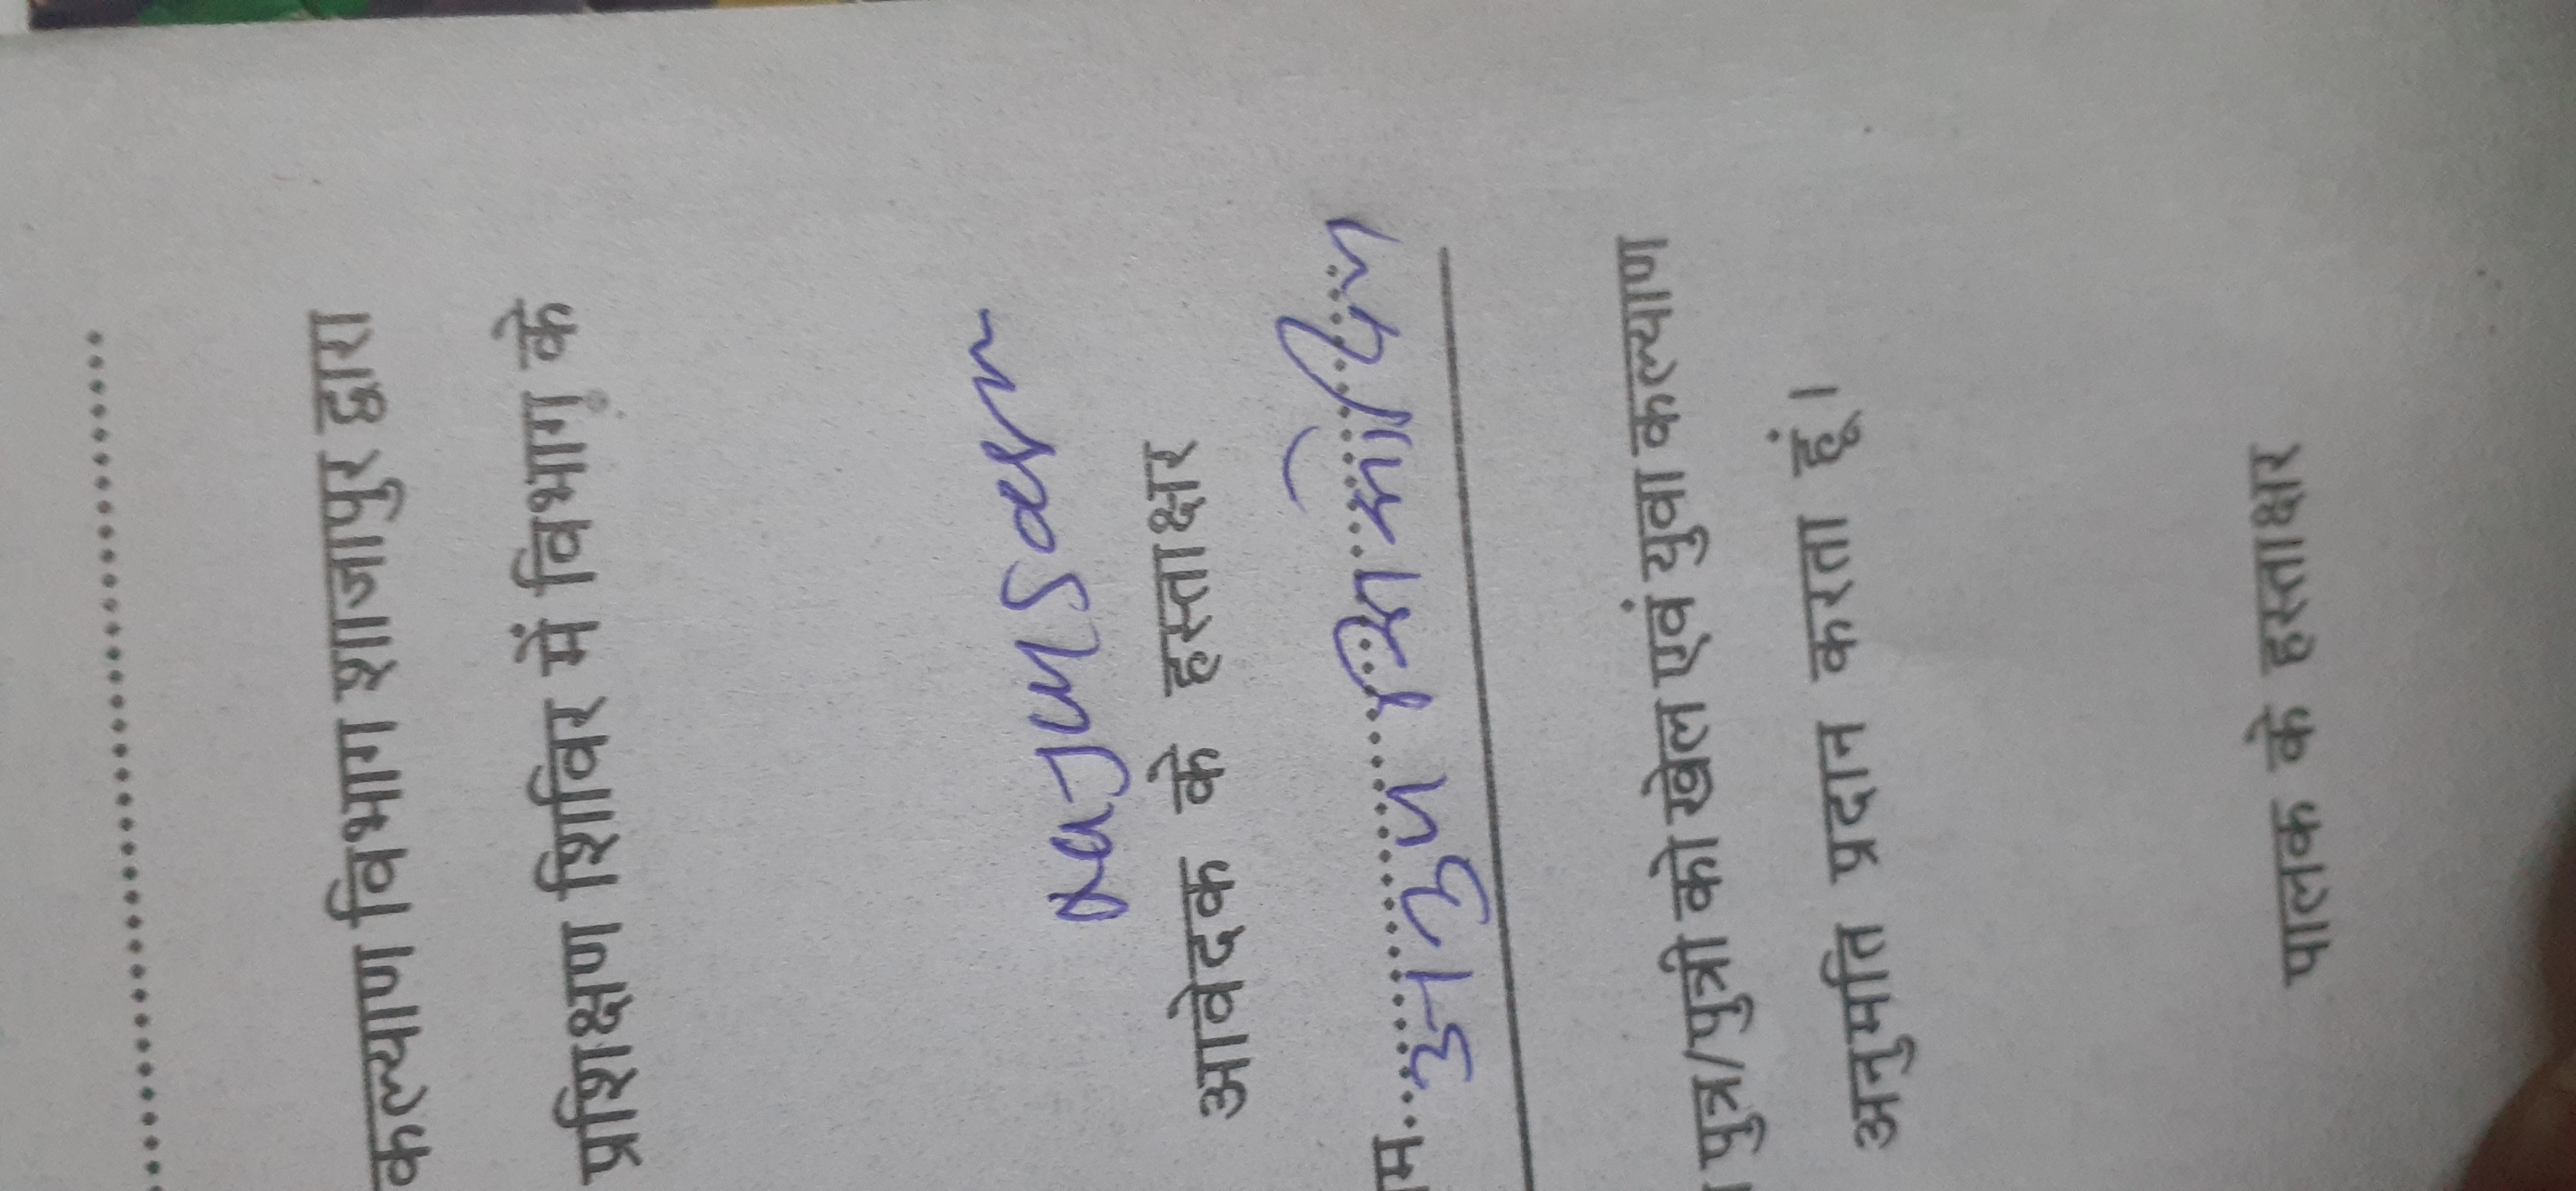 कल्याण विभाग शाजापुर द्वारा
प्रशिक्षण शिविर में विभाग के
आवेदक के हस्ताक्षर
म.. आयुष
पुत्र/पुत्री को खेल एवं युवा कल्याण
अनुमति प्रदान करता हूं।
पालक के हस्ताक्षर